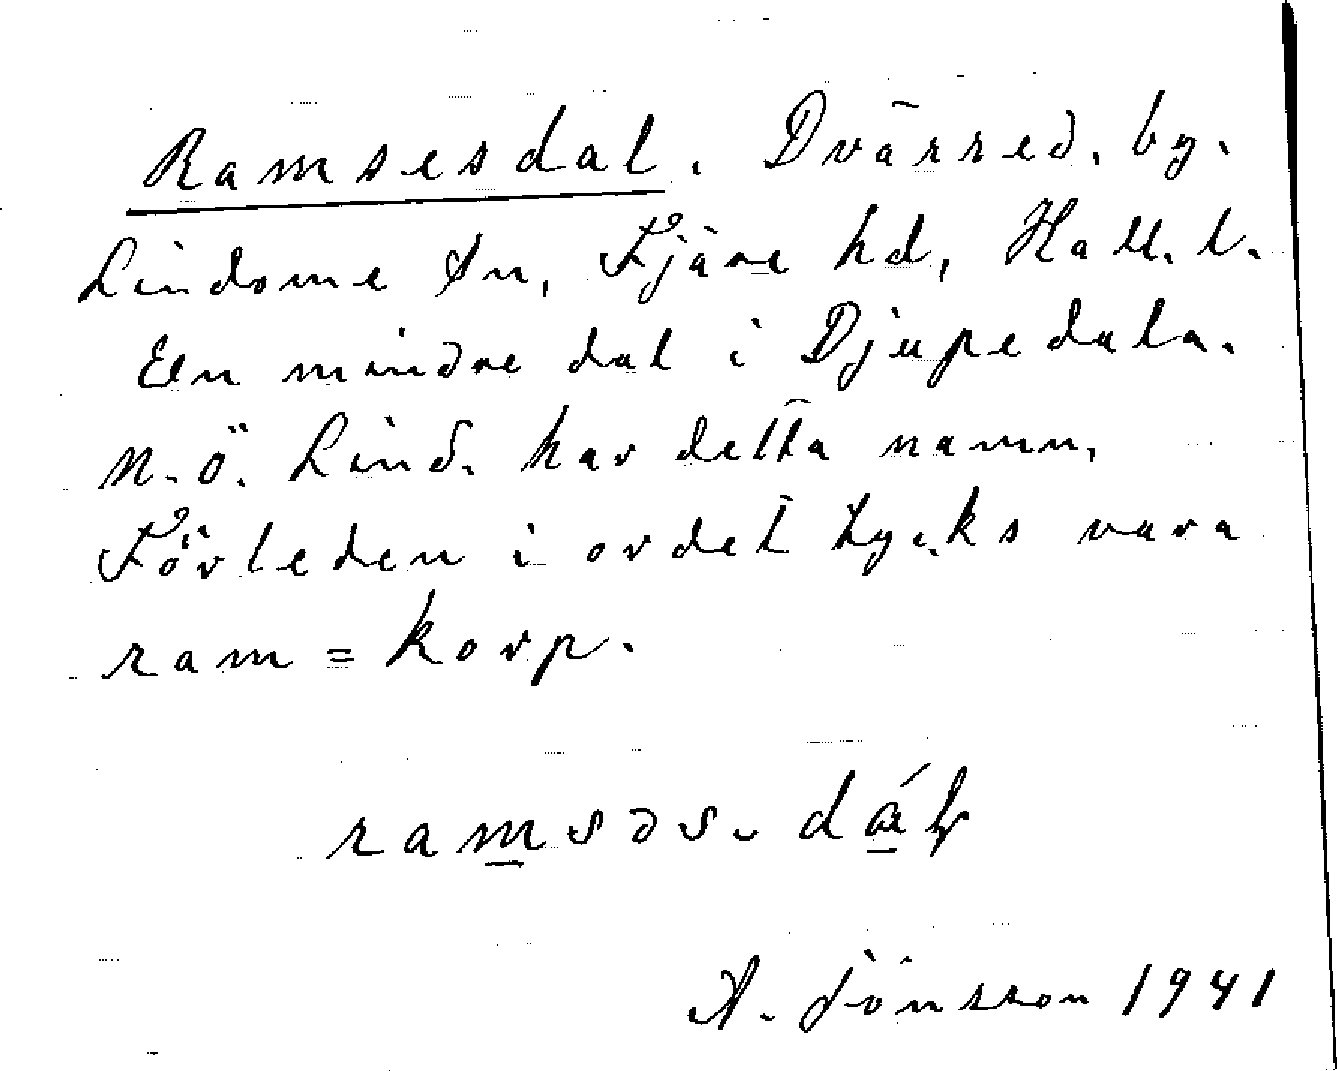 Ramsesdal. Dvärred. by.
Lindome sn, Fjäre hd, Hall. l.
En mindre dal i Djupedala.
N.Ö. Lind. har detta namn,
Förleden i ordet tycks vara
ram = korp.
ramsəs. dáɽ
A. Jönsson 1941